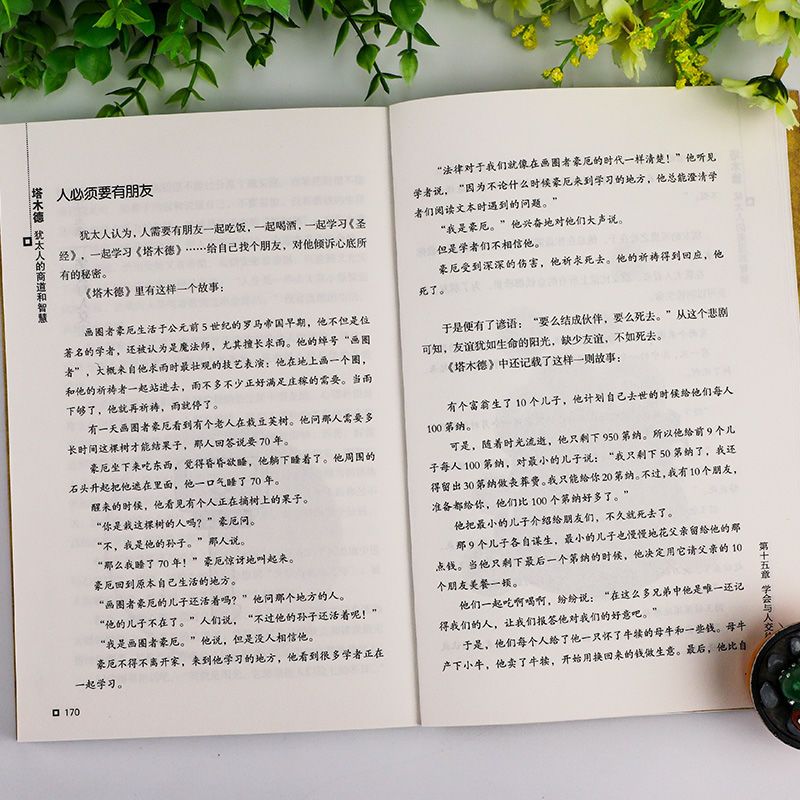 塔木德 犹太人的商道和智慧
人必须要有朋友
犹太人认为，人需要有朋友一起吃饭，一起喝酒，一起学习《圣
经》，一起学习《塔木德》……给自己找个朋友，对他倾诉心底所
有的秘密。
《塔木德》里有这样一个故事：
画图者豪厄生活于公元前5世纪的罗马帝国早期，他不但是位
著名的学者，还被认为是魔法师，尤其擅长求雨。他的绰号“画图
者”，大概来自他求雨时最壮观的技艺表演：他在地上画一个圈，
和他的祈祷者一起站进去，雨不多不少正好满足庄稼的需要。当雨
下够了，他就再祈祷，雨就停了。
有一天画图者豪厄看到有个老人在栽豆荚树。他问那人需要多
长时间这棵树才能结果子，那人回答说要70年。
豪厄坐下来吃东西，觉得昏昏欲睡，他躺下睡着了。他周围的
石头升起把他遮在里面，他一口气睡了70年。
醒来的时候，他看见有个人正在摘树上的果子。
“你是栽这棵树的人吗？”豪厄问。
“不，我是他的孙子。”那人说。
“那么我睡了70年！”豪厄惊讶地叫起来。
豪厄回到原本自己生活的地方。
“画图者豪厄的儿子还活着吗？”他问那个地方的人。
“他的儿子不在了。”人们说，“不过他的孙子还活着呢！”
“我是画图者豪厄。”他说，但是没人相信他。
豪厄不得不离开家，来到他学习的地方，他看到很多学者正在
一起学习。
170
“法律对于我们就像在画图者豪厄的时代一样清楚！”他听见
学者说，“因为不论什么时候豪厄来到学习的地方，他总能澄清学
者们阅读文本时遇到的问题。”
“我是豪厄。”他兴奋地对他们大声说。
但是学者们不相信他。
豪厄受到深深的伤害，他祈求死去。他的祈祷得到回应，他
死了。
于是便有了谚语：“要么结成伙伴，要么死去。”从这个悲剧
可知，友谊犹如生命的阳光，缺少友谊，不如死去。
《塔木德》中还记载了这样一则故事：
有个富翁生了10个儿子，他计划自己去世的时候给他们每人
100第纳。
可是，随着时光流逝，他只剩下950第纳。所以他给前9个儿
子每人100第纳，对最小的儿子说：“我只剩下50第纳了，我还
得留出30第纳做丧葬费。我只能给你20第纳。不过，我有10个朋友，
准备都给你，他们比100个第纳好多了。”
他把最小的儿子介绍给朋友们，不久就死去了。
那9个儿子各自谋生，最小的儿子也慢慢地花父亲留给他的那
点钱。当他只剩下最后一个第纳的时候，他决定用它请父亲的10
个朋友美餐一顿。
他们一起吃啊喝啊，纷纷说：“在这么多兄弟中他是唯一还记
得我们的人，让我们报答他对我们的好意吧。”
于是，他们每个人给了他一只怀了牛犊的母牛和一些钱。母牛
产下小牛，他卖了牛犊，开始用换回来的钱做生意。最后，他比自
第十五章 学会与人交